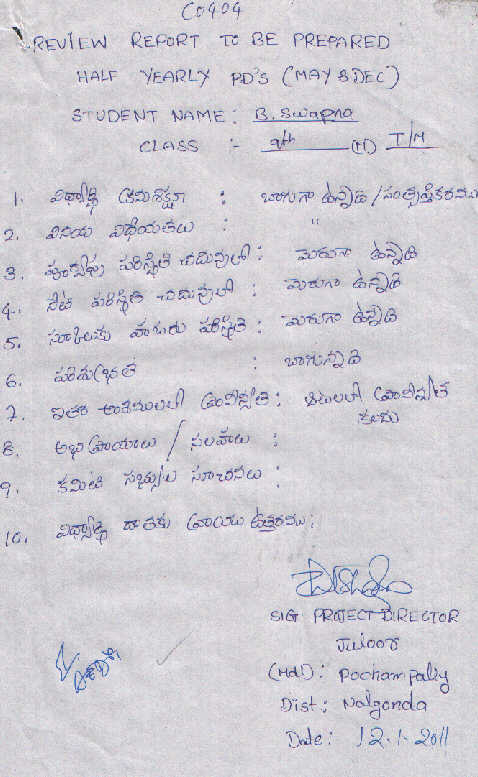 C0404
REVIEW REPORT TO BE PREPARED
HALF YEARLY PD'S (MAY & DEC)
STUDENT NAME: B. Swapna
CLASS :- 9th (M) T/M
1. విద్యార్థి క్రమశిక్షణ : బాగుగా ఉన్నది / సంతృప్తికరము
2. వినయ విధేయతలు : "
3. పూర్వపు పరిస్థితి చదువులో : మెరుగా ఉన్నది
4. నేటి పరిస్థితి చదువులో : మెరుగా ఉన్నది
5. హాజరు పరిస్థితి : మెరుగా ఉన్నది
6. పరిశుభ్రత : బాగున్నది
7. ఇతర అంశములలో : ఆటలలో
8. అభిప్రాయాలు / సలహాలు :
9. కమిటి సభ్యుల సూచనలు :
10. విద్యార్థి దాతకు వ్రాయు ఉత్తరము :
SIG PROJECT DIRECTOR
Juloor
(Mdl) : Pochampally
Dist : Nalgonda
Date : 12.1.2011